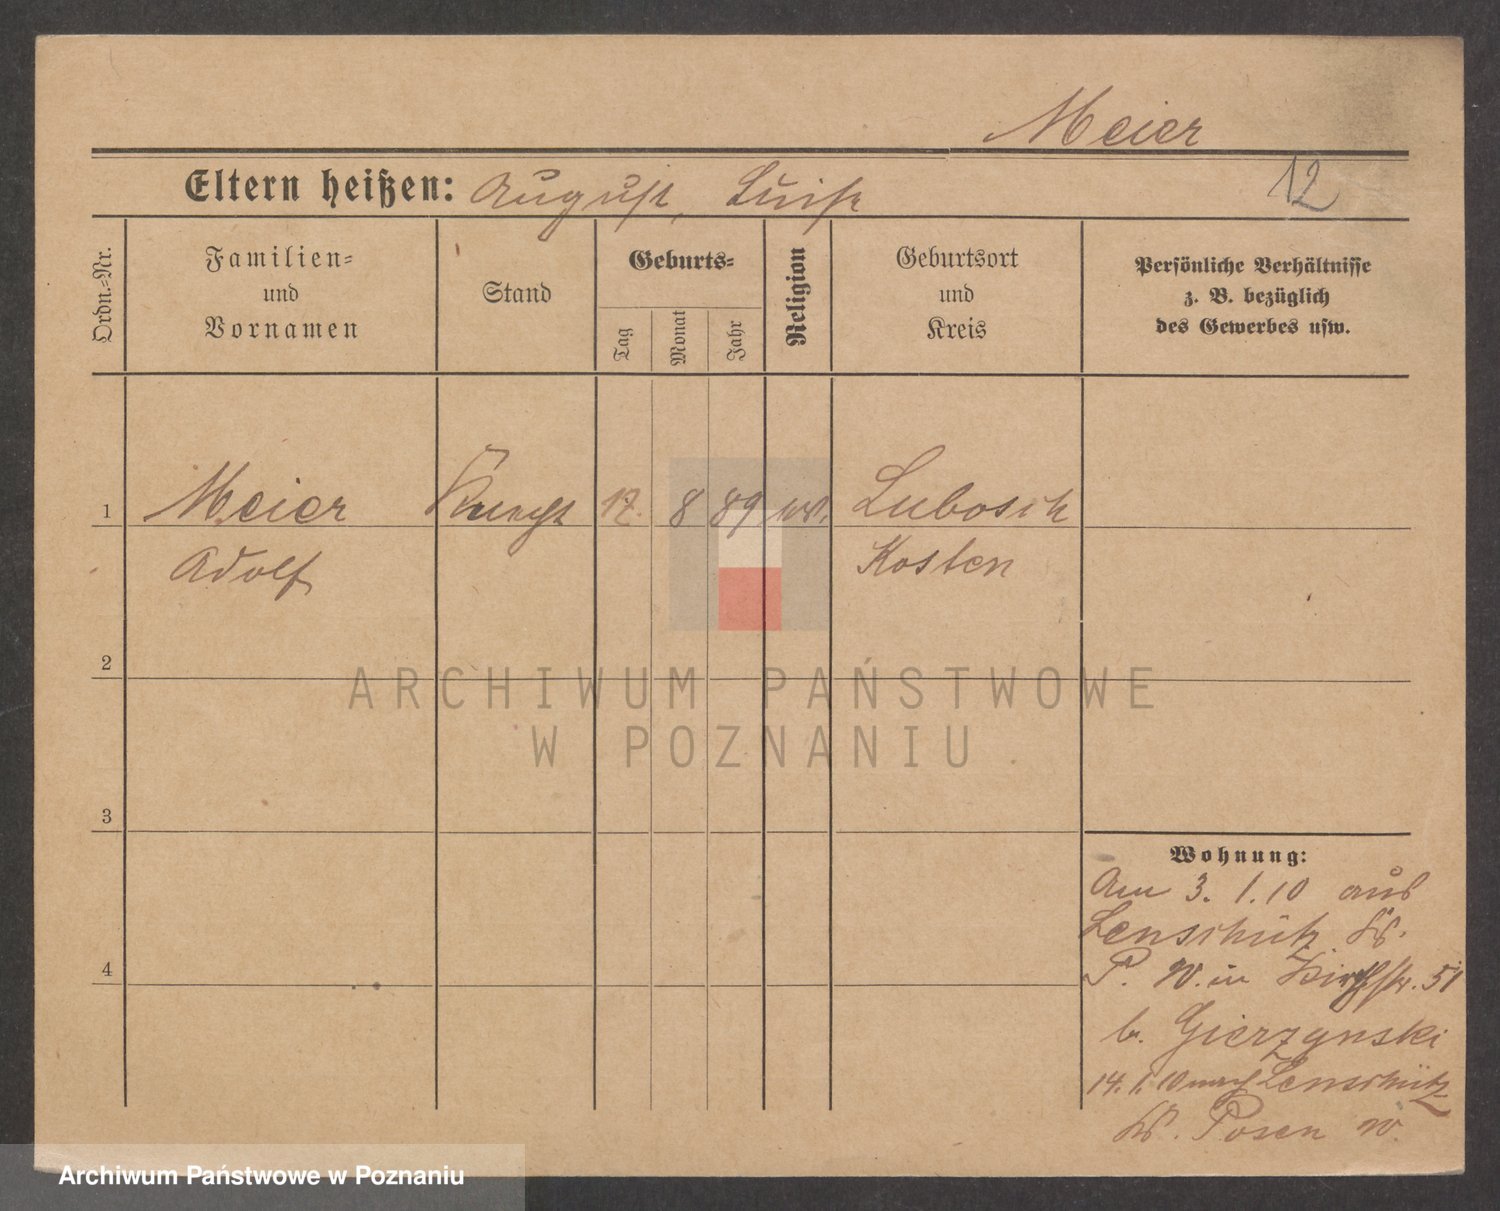 Meier
12
Eltern heißen: August, Luise
Ordn.-Nr.
Familien-
und
Vornamen
Stand
Geburts-
Tag
Monat
Jahr
Religion
Geburtsort
und
Kreis
Persönliche Verhältnisse
z. B. bezüglich
des Gewerbes usw.
1 Meier Knecht 17. 8 89 ev. Lubosch
Adolf Kosten
2
3
4
ARCHIWUM PAŃSTWOWE
W POZNANIU
Wohnung:
Am 3. 1. 10 aus
Lenschütz Kr.
P. W. in Kirchstr. 51
b. Gierzynski
14. 1. 10 nach Lenschütz
Kr. Posen W.
Archiwum Państwowe w Poznaniu